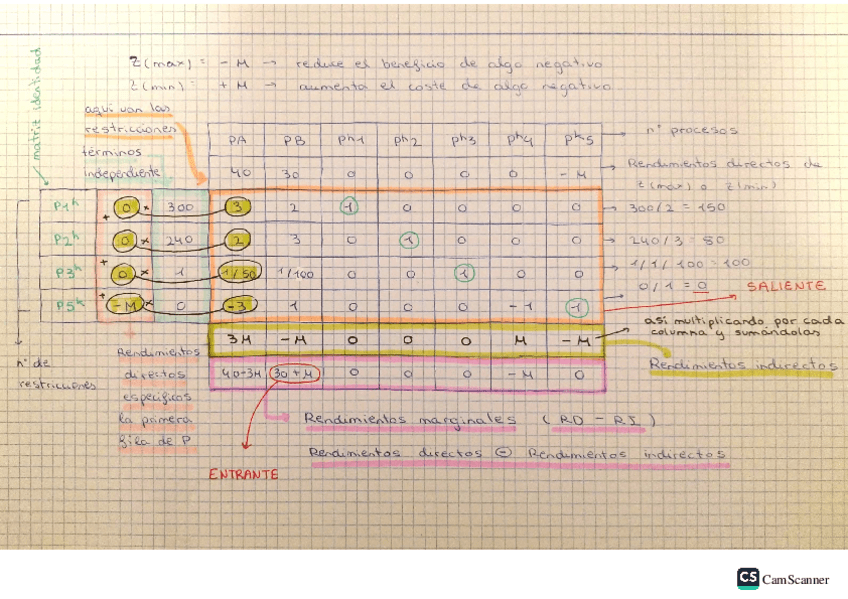 Z(max) = - M → reduce el beneficio de algo negativo
Z(min) = + M → aumenta el coste de algo negativo
matriz identidad
aquí van las
restricciones
términos
independiente
PA PB Ph1 Ph2 Ph3 Ph4 Ph5 → nº procesos
40 30 0 0 0 0 -M → Rendimientos directos de
Z(max) o Z(min)
P1h 0 × 300 3 2 1 0 0 0 0 → 300/2 = 150
P2h + 0 × 240 2 3 0 1 0 0 0 → 240/3 = 80
P3h + 0 × 1 1/50 1/100 0 0 1 0 0 → 1/1/100 = 100
P5h + -M × 0 -3 1 0 0 0 -1 1 → 0/1 = 0 SALIENTE
3M -M 0 0 0 M -M → así multiplicando por cada
columna y sumándolas
Rendimientos indirectos
40-3M 30+M 0 0 0 -M 0
nº de
restricciones
Rendimientos
directos
específicos
la primera
fila de P
Rendimientos marginales (RD - RI)
Rendimientos directos ⊖ Rendimientos indirectos
ENTRANTE
CS CamScanner